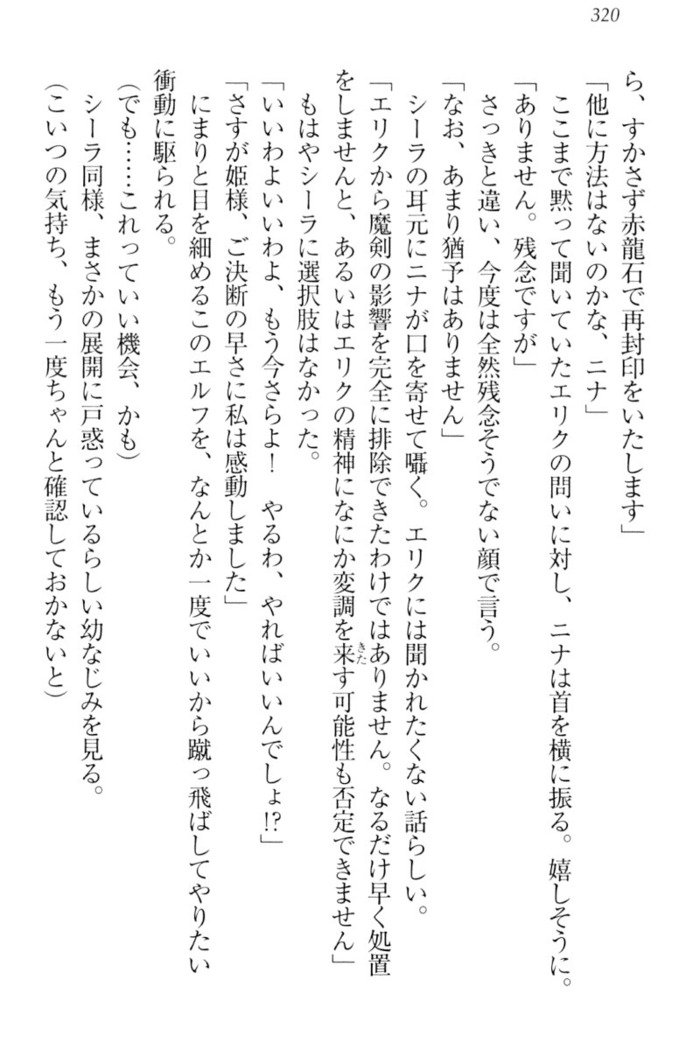 320
ら、すかさず赤龍石で再封印をいたします」
「他に方法はないのかな、ニナ」
ここまで黙って聞いていたエリクの問いに対し、ニナは首を横に振る。嬉しそうに。
「ありません。残念ですが」
さっきと違い、今度は全然残念そうでない顔で言う。
「なお、あまり猶予はありません」
シーラの耳元にニナが口を寄せて囁く。エリクには聞かれたくない話らしい。
「エリクから魔剣の影響を完全に排除できたわけではありません。なるだけ早く処置
をしませんと、あるいはエリクの精神になにか変調を来す可能性も否定できません」
きた
もはやシーラに選択肢はなかった。
「いいわよいいわよ、もう今さらよ！　やるわ、やればいいんでしょ!?」
「さすが姫様、ご決断の早さに私は感動しました」
にまりと目を細めるこのエルフを、なんとか一度でいいから蹴っ飛ばしてやりたい
衝動に駆られる。
（でも……これっていい機会、かも）
シーラ同様、まさかの展開に戸惑っているらしい幼なじみを見る。
（こいつの気持ち、もう一度ちゃんと確認しておかないと）